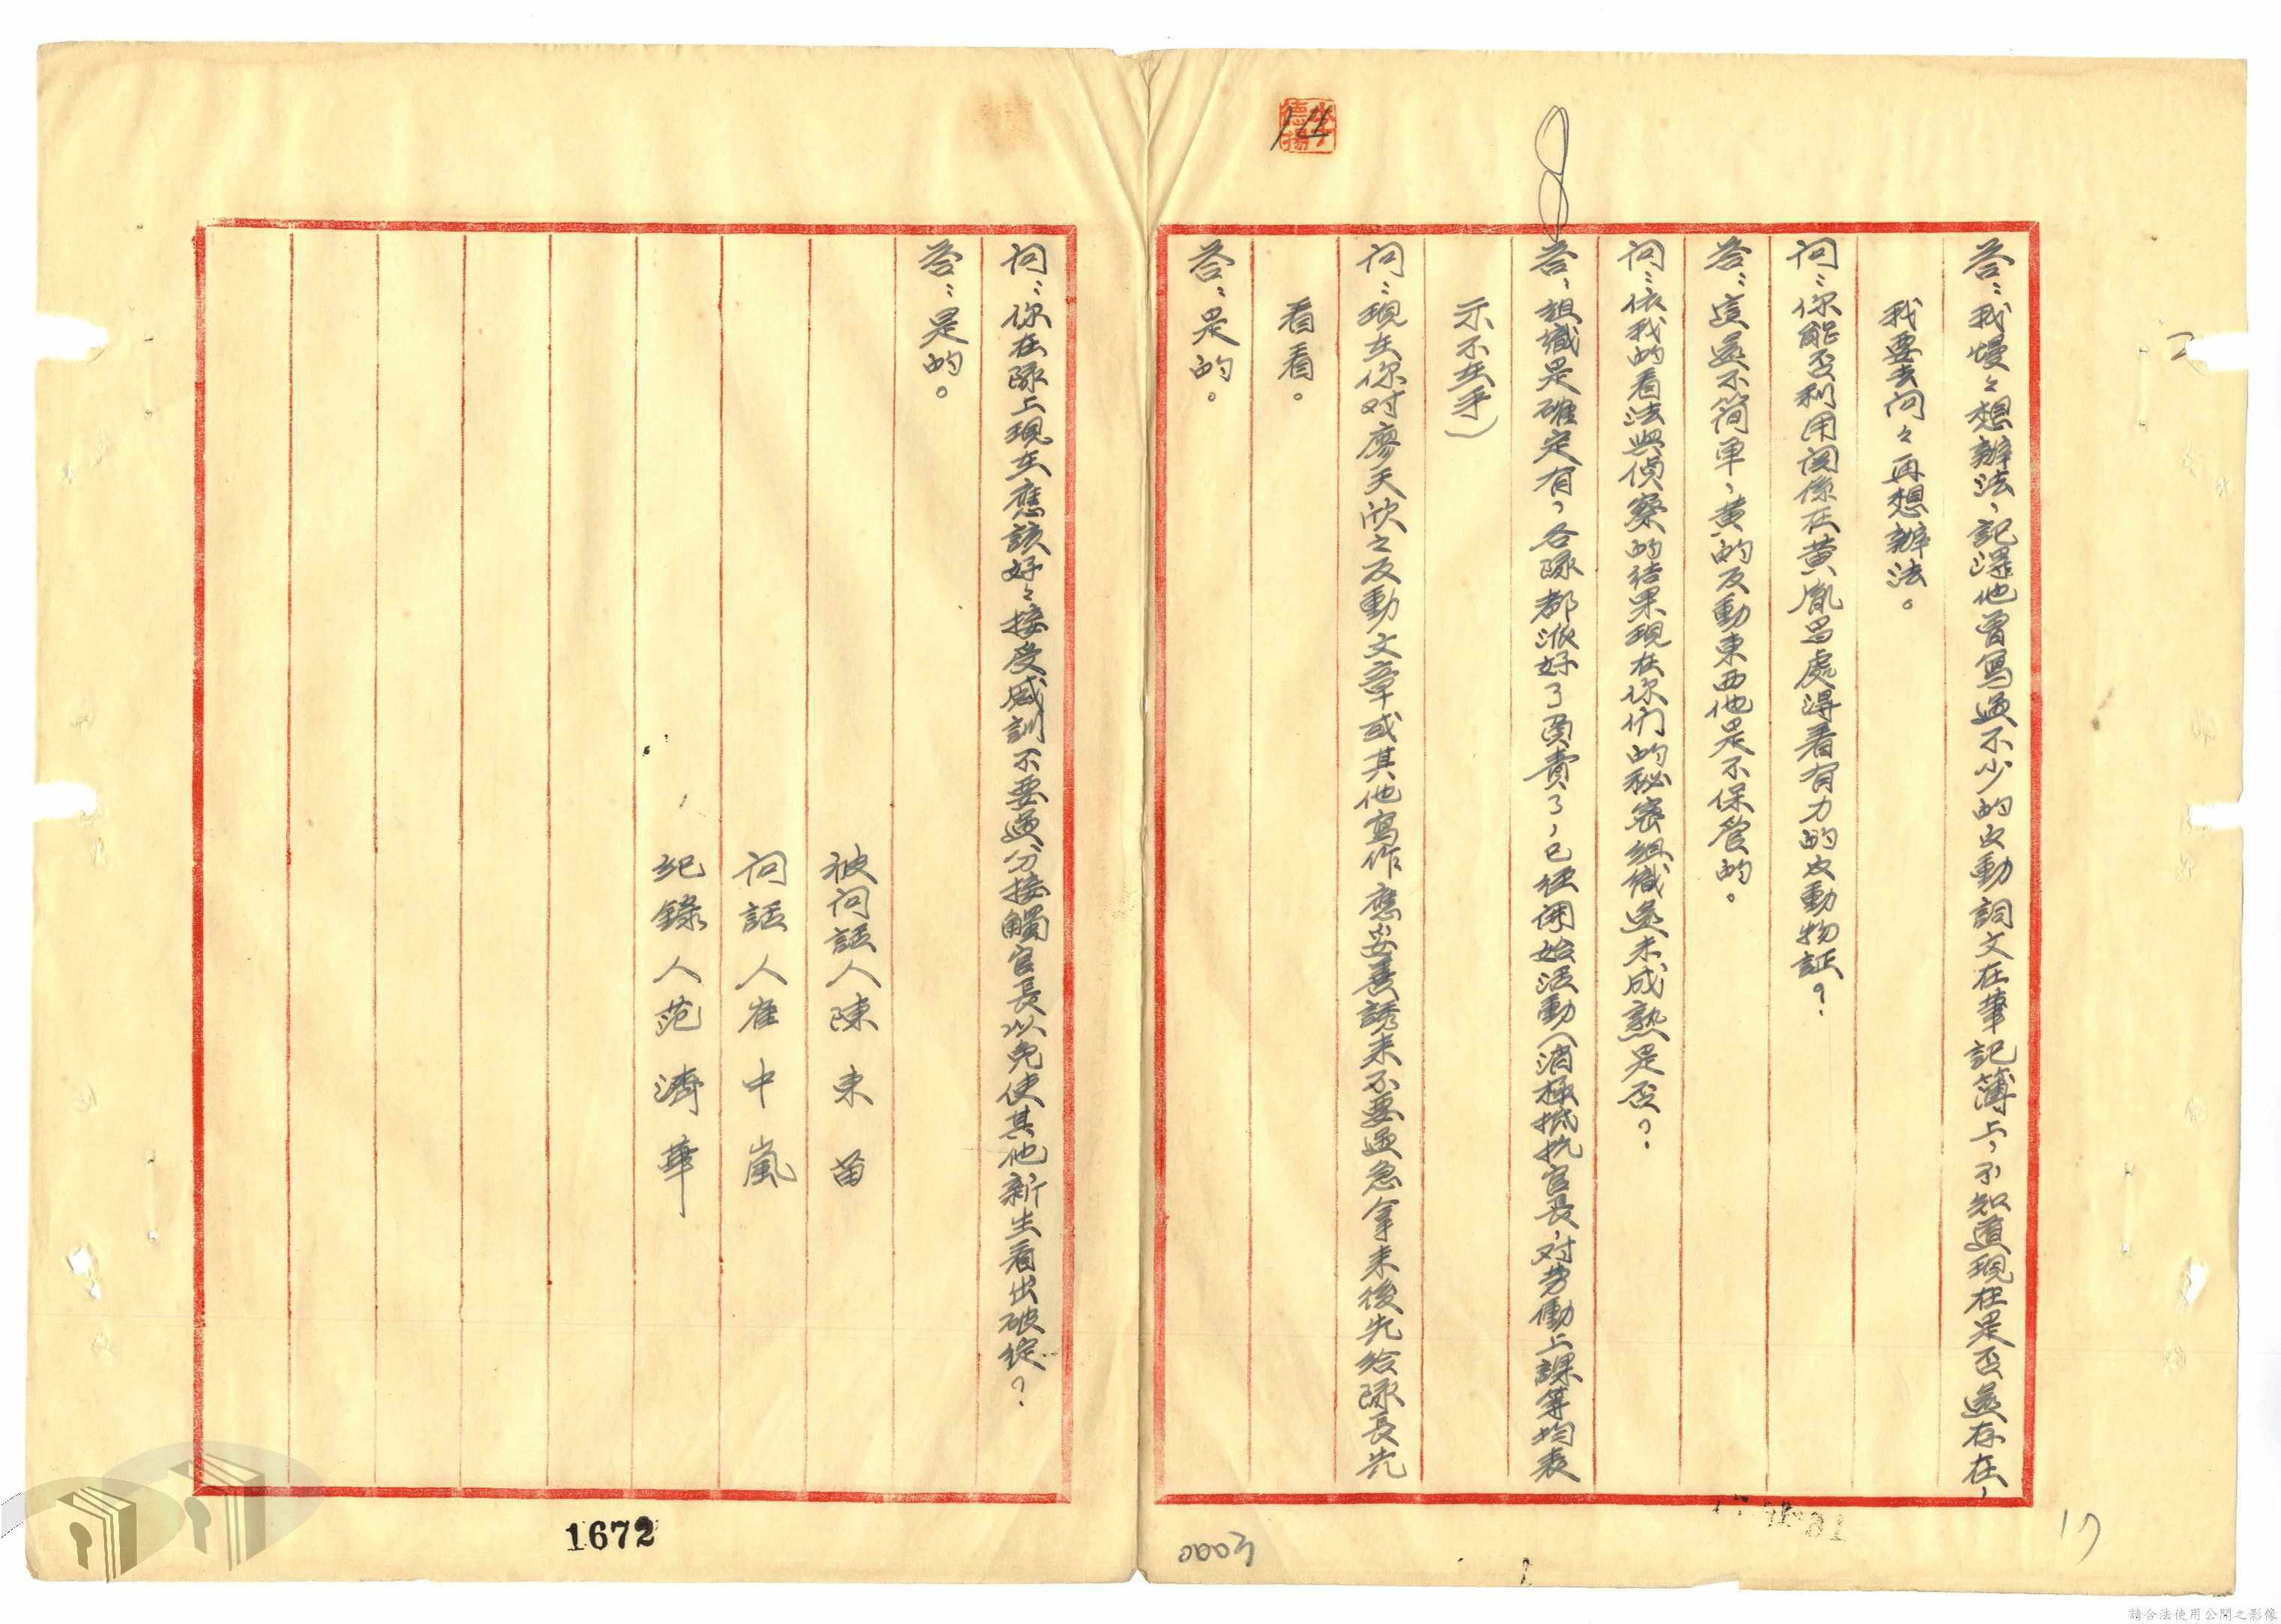 答：我慢々想辦法，記得他曾寫過不少的反動詞文在筆記薄上，不知道現在是否還存在，
我要去问々再想辦法。
问：你能否利用関係在黄胤昌處得着有力的反動物証？
答：這還不简单，黄的反動東西他是不保管的。
问：依我的看法與偵察的结果現在你们的秘密组織還未成熟是否？
答：组織是確定有，各隊都派好了負責了，已经開始活動（消極抵抗官長，对劳働上課等均表
示不在乎）
问：現在你对廖天欣之反動文章或其他寫作應妥善誘来不要過急拿来後先给隊長先
看看。
答：是的。
问：你在隊上現在應該好々接受感訓不要過分接觸官長以免使其他新生看出破绽？
答：是的。
被问話人陳東苗
问話人崔中嵐
紀錄人范濟華
14
17
1672
00003
請合法使用公開之影像